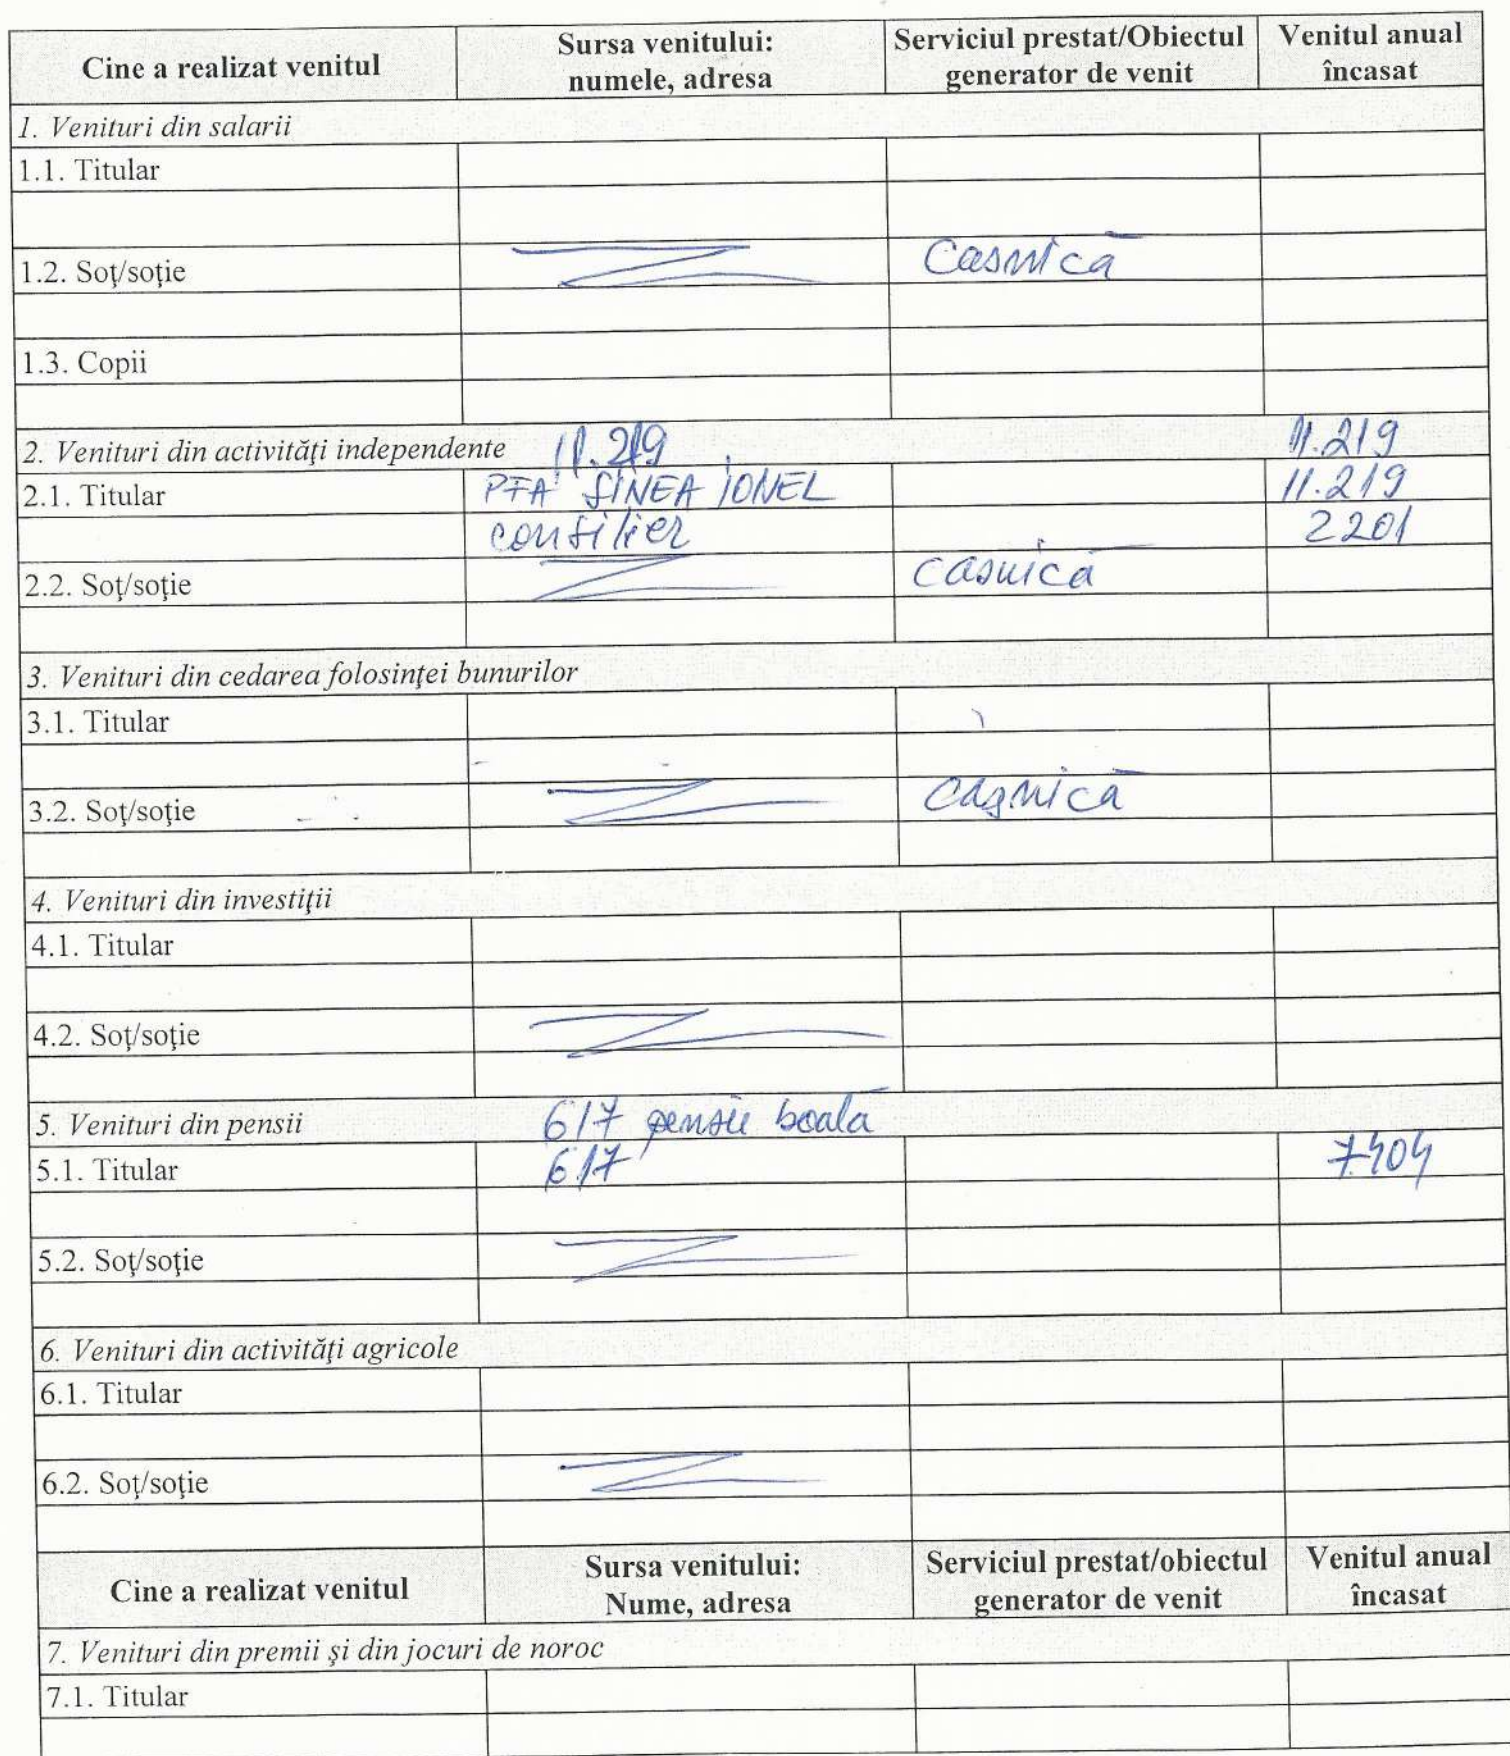 Cine a realizat venitul
Sursa venitului:
numele, adresa
Serviciul prestat/Obiectul
generator de venit
Venitul anual
încasat
1. Venituri din salarii
1.1. Titular
1.2. Soţ/soţie Casnică
1.3. Copii
2. Venituri din activităţi independente 11.219 11.219
2.1. Titular PFA SINEA IONEL 11.219
consilier 2201
2.2. Soţ/soţie casnică
3. Venituri din cedarea folosinţei bunurilor
3.1. Titular
3.2. Soţ/soţie casnică
4. Venituri din investiţii
4.1. Titular
4.2. Soţ/soţie
5. Venituri din pensii 617 pensie boală
5.1. Titular 617 7404
5.2. Soţ/soţie
6. Venituri din activităţi agricole
6.1. Titular
6.2. Soţ/soţie
Cine a realizat venitul
Sursa venitului:
Nume, adresa
Serviciul prestat/obiectul
generator de venit
Venitul anual
încasat
7. Venituri din premii şi din jocuri de noroc
7.1. Titular